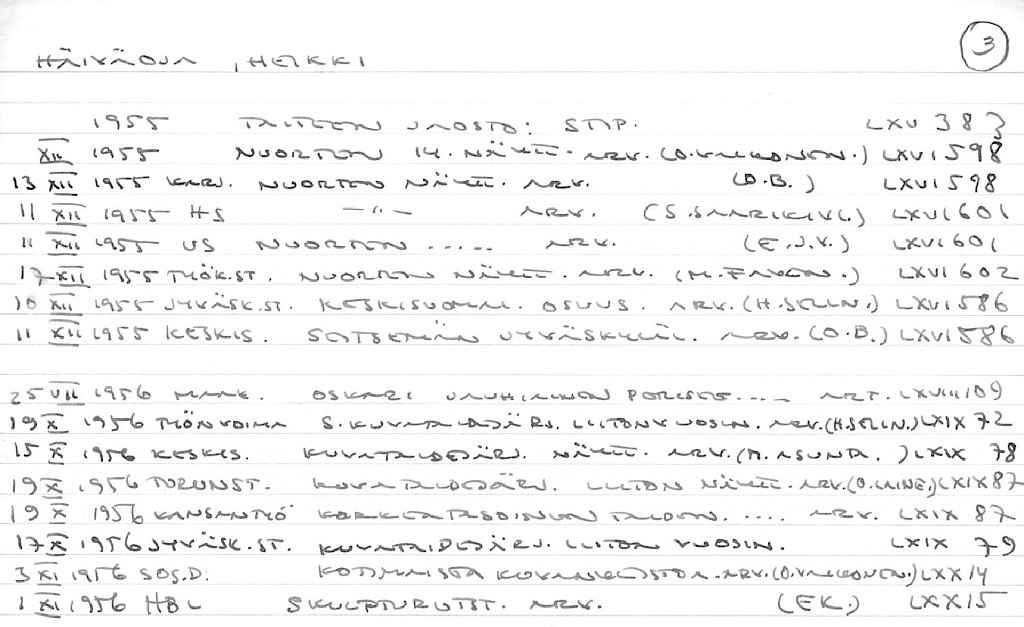 3
HÄIVÄOJA, HEIKKI
1955 TAITEEN JAOSTO: STIP. LXV 383
XII 1955 NUORTEN 14. NÄYTT. ARV. (O.VALKONEN.) LXVI 598
13 XII 1955 KARJ. NUORTEN NÄYTT. ARV. (O.B.) LXVI 598
11 XII 1955 HS —"— ARV. (S.SAARIKIVI.) LXVI 601
11 XII 1955 US NUORTEN ..... ARV. (E.J.V.) LXVI 601
17 XII 1955 TYÖK.ST. NUORTEN NÄYTT. ARV. (M.) LXVI 602
10 XII 1955 JYVÄSK.ST. KESKISUOMAL. OSUUS. ARV. (H.SELIN.) LXVI 586
11 XII 1955 KESKIS. SEITSEMÄN JYVÄSKYLÄL. ARV. (O.B.) LXVI 586
25 VII 1956 MAAK. OSKARI JAUHIAINEN PORISTA .... ART. LXVIII 109
19 X 1956 TYÖNVOIMA S. KUVATAIDEJÄRJ. LIITON VUOSIN. ARV. (H.SELIN.) LXIX 72
15 X 1956 KESKIS. KUVATAIDEJÄRJ. NÄYTT. ARV. (M.ASUNTA.) LXIX 78
19 X 1956 TURUNST. KUVATAIDEJÄRJ. LIITON NÄYTT. ARV. (O.LAINE.) LXIX 87
19 X 1956 KANSANTYÖ KORKEATASOINEN TAIDEN. .... ARV. LXIX 87
17 X 1956 JYVÄSK.ST. KUVATAIDEJÄRJ. LIITON VUOSIN. LXIX 79
3 XI 1956 SOS.D. KOTIMAISTA KUVANVEISTOA. ARV. (O.VALKONEN.) LXX 14
1 XI 1956 HBL SKULPTURUTST. ARV. (EK.) LXX 15